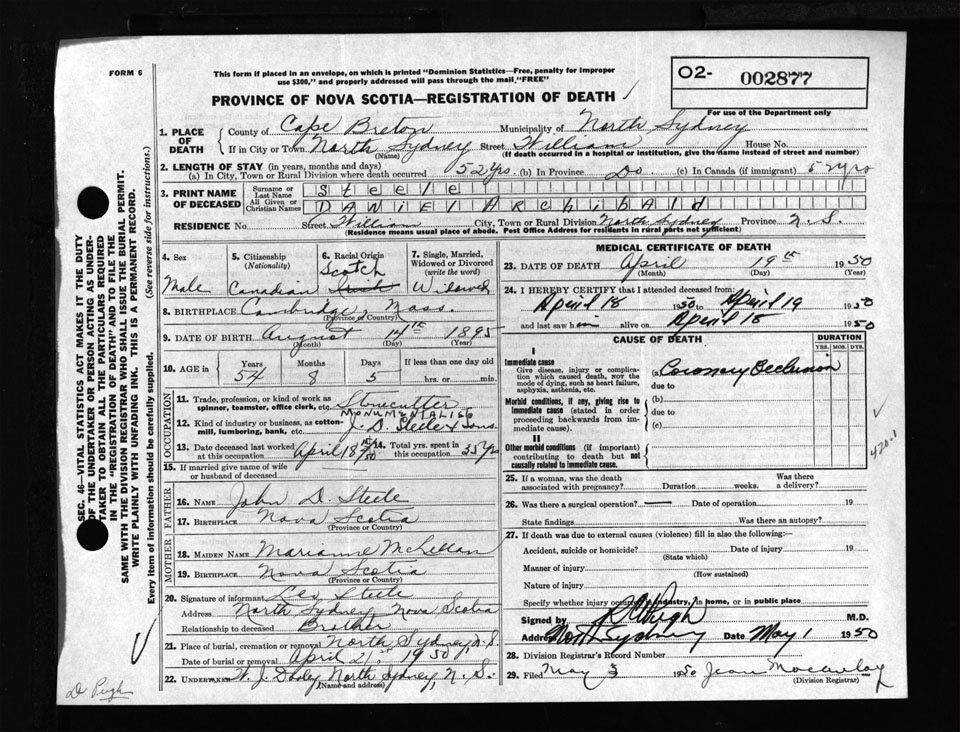 FORM 6
This form if placed in an envelope, on which is printed "Dominion Statistics—Free, penalty for improper
use $300," and properly addressed will pass through the mail "FREE"
O2- 002877
For use of the Department only
PROVINCE OF NOVA SCOTIA—REGISTRATION OF DEATH ✓
1. PLACE OF DEATH
County of Cape Breton Municipality of North Sydney
If in City or Town North Sydney Street William House No.
(Name) (If death occurred in a hospital or institution, give the name instead of street and number)
2. LENGTH OF STAY (in years, months and days)
(a) In City, Town or Rural Division where death occurred 52 yrs. (b) In Province Do. (c) In Canada (if immigrant) 52 yrs
3. PRINT NAME OF DECEASED
Surname or Last Name Steele
All Given or Christian Names DANIEL ARCHIBALD
RESIDENCE No. Street William City, Town or Rural Division North Sydney Province N.S.
(Residence means usual place of abode. Post Office Address for residents in rural parts not sufficient)
4. Sex Male
5. Citizenship (Nationality) Canadian
6. Racial Origin Scotch
7. Single, Married, Widowed or Divorced (write the word) Widowed
8. BIRTHPLACE Cambridge, Mass.
(Province or Country)
9. DATE OF BIRTH August 14th 1895
(Month) (Day) (Year)
10. AGE in Years Months Days If less than one day old
54 8 5 hrs. or min.
OCCUPATION
11. Trade, profession, or kind of work as
spinner, teamster, office clerk, etc. Stonecutter
12. Kind of industry or business, as cotton-
mill, lumbering, bank, etc. MONUMENTALIST J. D. Steele & Sons.
13. Date deceased last worked at this occupation April 18th/50
14. Total yrs. spent in this occupation 35 yrs
15. If married give name of wife
or husband of deceased
FATHER
16. NAME John D. Steele
17. BIRTHPLACE Nova Scotia
(Province or Country)
MOTHER
18. MAIDEN NAME Marianne McLellan
19. BIRTHPLACE Nova Scotia
(Province or Country)
20. Signature of informant Leo Steele
Address North Sydney, Nova Scotia
Relationship to deceased Brother
21. Place of burial, cremation or removal North Sydney N.S.
Date of burial or removal April 21st 1950
22. UNDERTAKER W. J. Dooley North Sydney, N. S.
(Name and address)
MEDICAL CERTIFICATE OF DEATH
23. DATE OF DEATH April 19th 1950
(Month) (Day) (Year)
24. I HEREBY CERTIFY that I attended deceased from:
April 18 1950 to April 19 1950
and last saw him alive on April 18 1950
CAUSE OF DEATH
DURATION
YRS. MOS. DYS.
I
Immediate cause
Give disease, injury or complica-
tion which caused death, not the
mode of dying, such as heart failure,
asphyxia, asthenia, etc.
(a) Coronary Occlusion
due to
Morbid conditions, if any, giving rise to
immediate cause (stated in order
proceeding backwards from im-
mediate cause).
(b)
due to
(c)
II
Other morbid conditions (if important)
contributing to death but not
causally related to immediate cause.
✓
420.1
25. If a woman, was the death
associated with pregnancy? Duration weeks. Was there
a delivery?
26. Was there a surgical operation? — Date of operation 19
State findings Was there an autopsy?
27. If death was due to external causes (violence) fill in also the following:—
Accident, suicide or homicide? Date of injury 19
(State which)
Manner of injury
(How sustained)
Nature of injury
Specify whether injury occurred in industry, in home, or in public place
Signed by Pugh M.D.
Address North Sydney Date May 1 1950
28. Division Registrar's Record Number
29. Filed May 3 1950 Jean Macaulay
(Division Registrar)
SEC. 46—VITAL STATISTICS ACT MAKES IT THE DUTY
OF THE UNDERTAKER OR PERSON ACTING AS UNDER-
TAKER TO OBTAIN ALL THE PARTICULARS REQUIRED
IN THE "REGISTRATION OF DEATH" AND TO FILE THE
SAME WITH THE DIVISION REGISTRAR WHO SHALL ISSUE THE BURIAL PERMIT.
WRITE PLAINLY WITH UNFADING INK. THIS IS A PERMANENT RECORD.
Every item of information should be carefully supplied. (See reverse side for instructions.)
✓
Dr Pugh